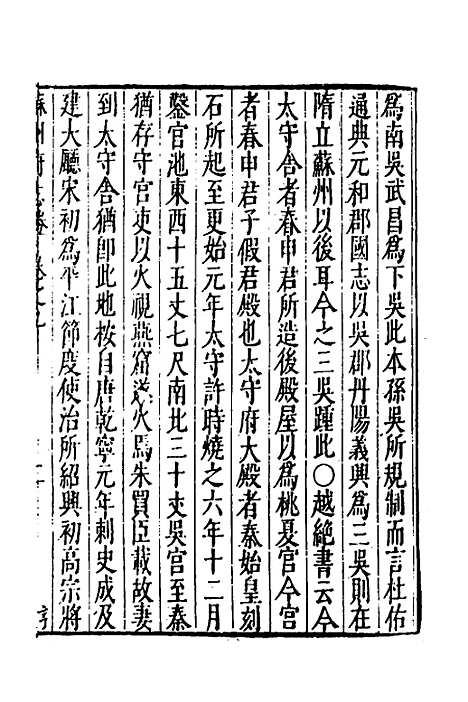 爲南吳武昌爲下吳此本孫吳所規制而言杜佑
通典元和郡國志以吳郡丹陽義興爲三吳則在
隋立蘇州以後耳今之三吳踵此○越絕書云今
太守舍者春申君所造後殿屋以爲桃夏宮今宮
者春申君子假君殿也太守府大殿者秦始皇刻
石所起至更始元年太守許時燒之六年十二月
鑿官池東西十五丈七尺南北三十丈吳宮至秦
猶存守宮吏以火視燕窟遂火焉朱買臣載故妻
到太守舍猶卽此地桉自唐乾寧元年刺史成及
建大廳宋初爲平江節度使治所紹興初高宗將
蘇州府志卷
序